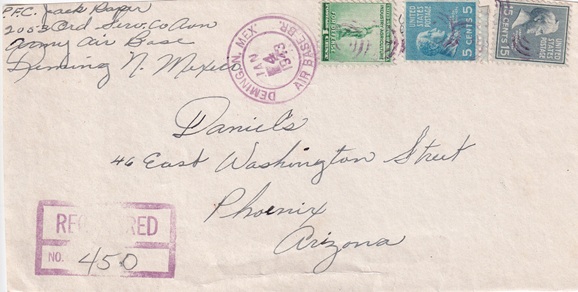 P.F.C. Jack
2003 Ord. Serv. Co Avn
Army Air Base
Deming N. Mexico
DEMINGTON, N. MEX.
JAN
1943
AIR BASE BR.
FOR DEFENSE
UNITED STATES POSTAGE
5 CENTS 5
UNITED STATES POSTAGE
15 CENTS 15
Daniel's
46 East Washington Street
Phoenix
Arizona
REGISTERED
NO. 450